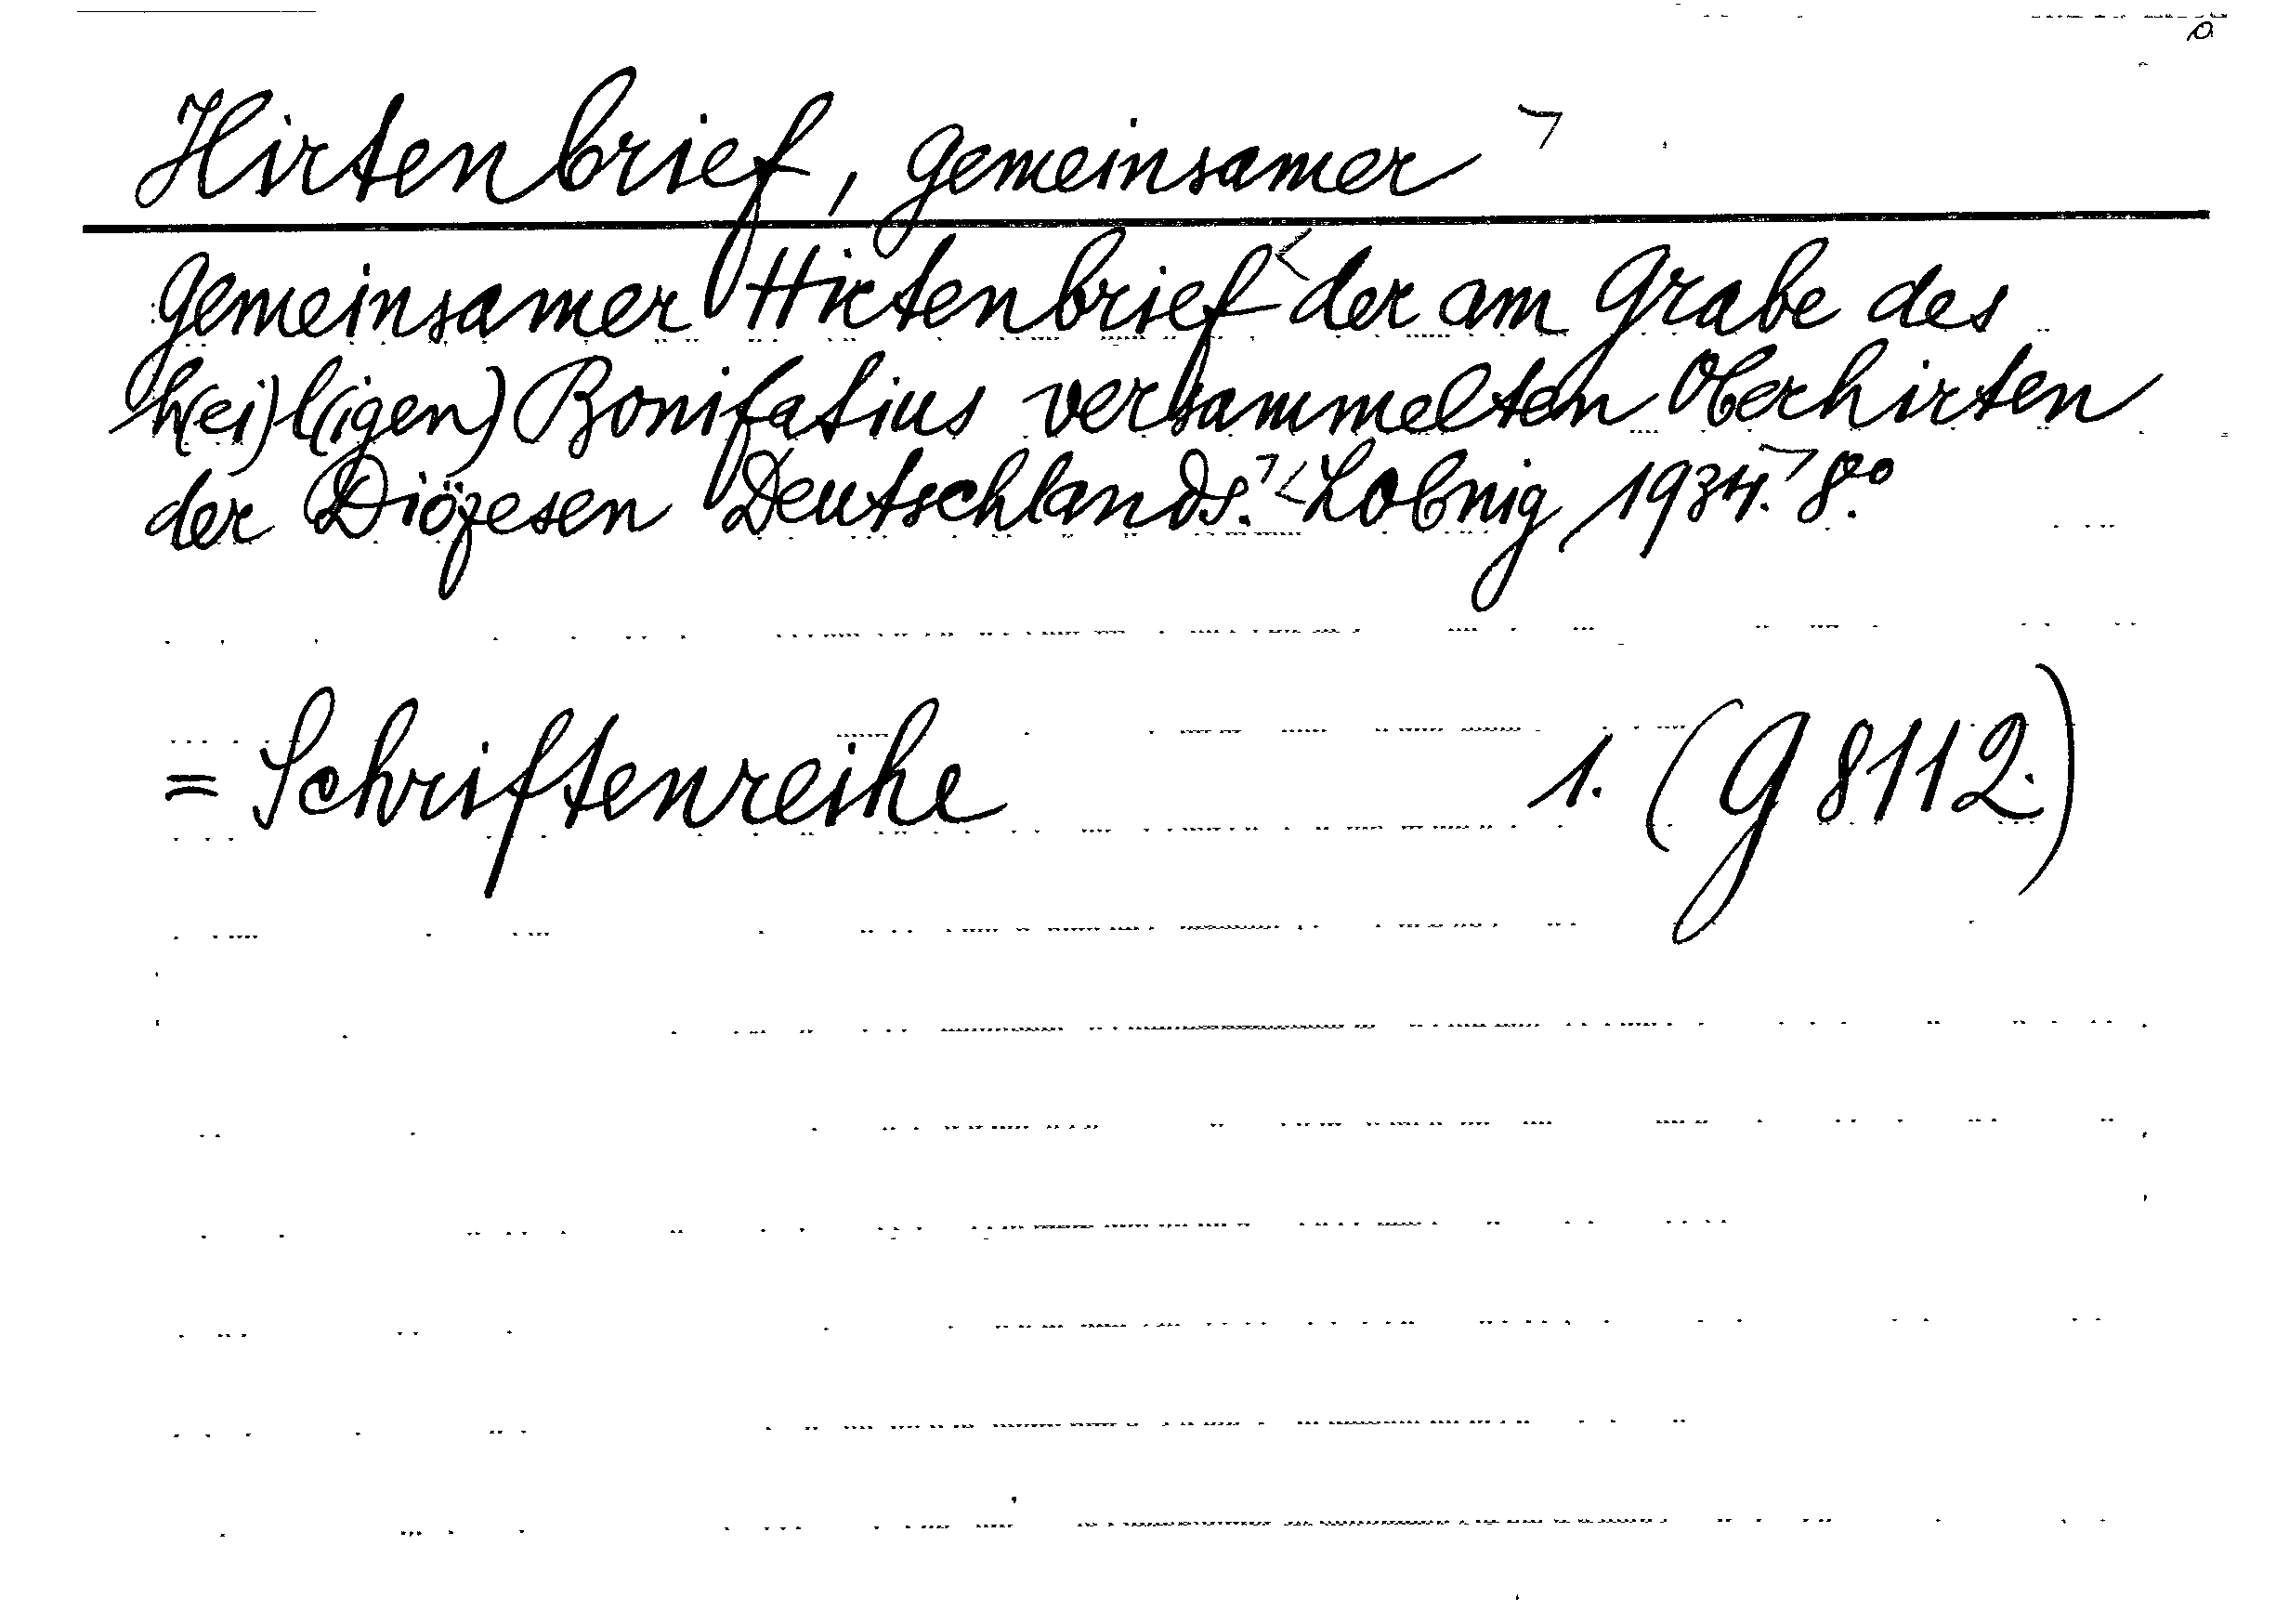 Hirtenbrief, gemeinsamer ¬
Gemeinsamer Hirtenbrief <der am Grabe des
h(ei)l(igen) Bonifatius versammelten Oberhirten
der Diözesen Deutschlands.¬ <Lobnig 1934.¬ 8.°
= Schriftenreihe 1. (G 8112.)